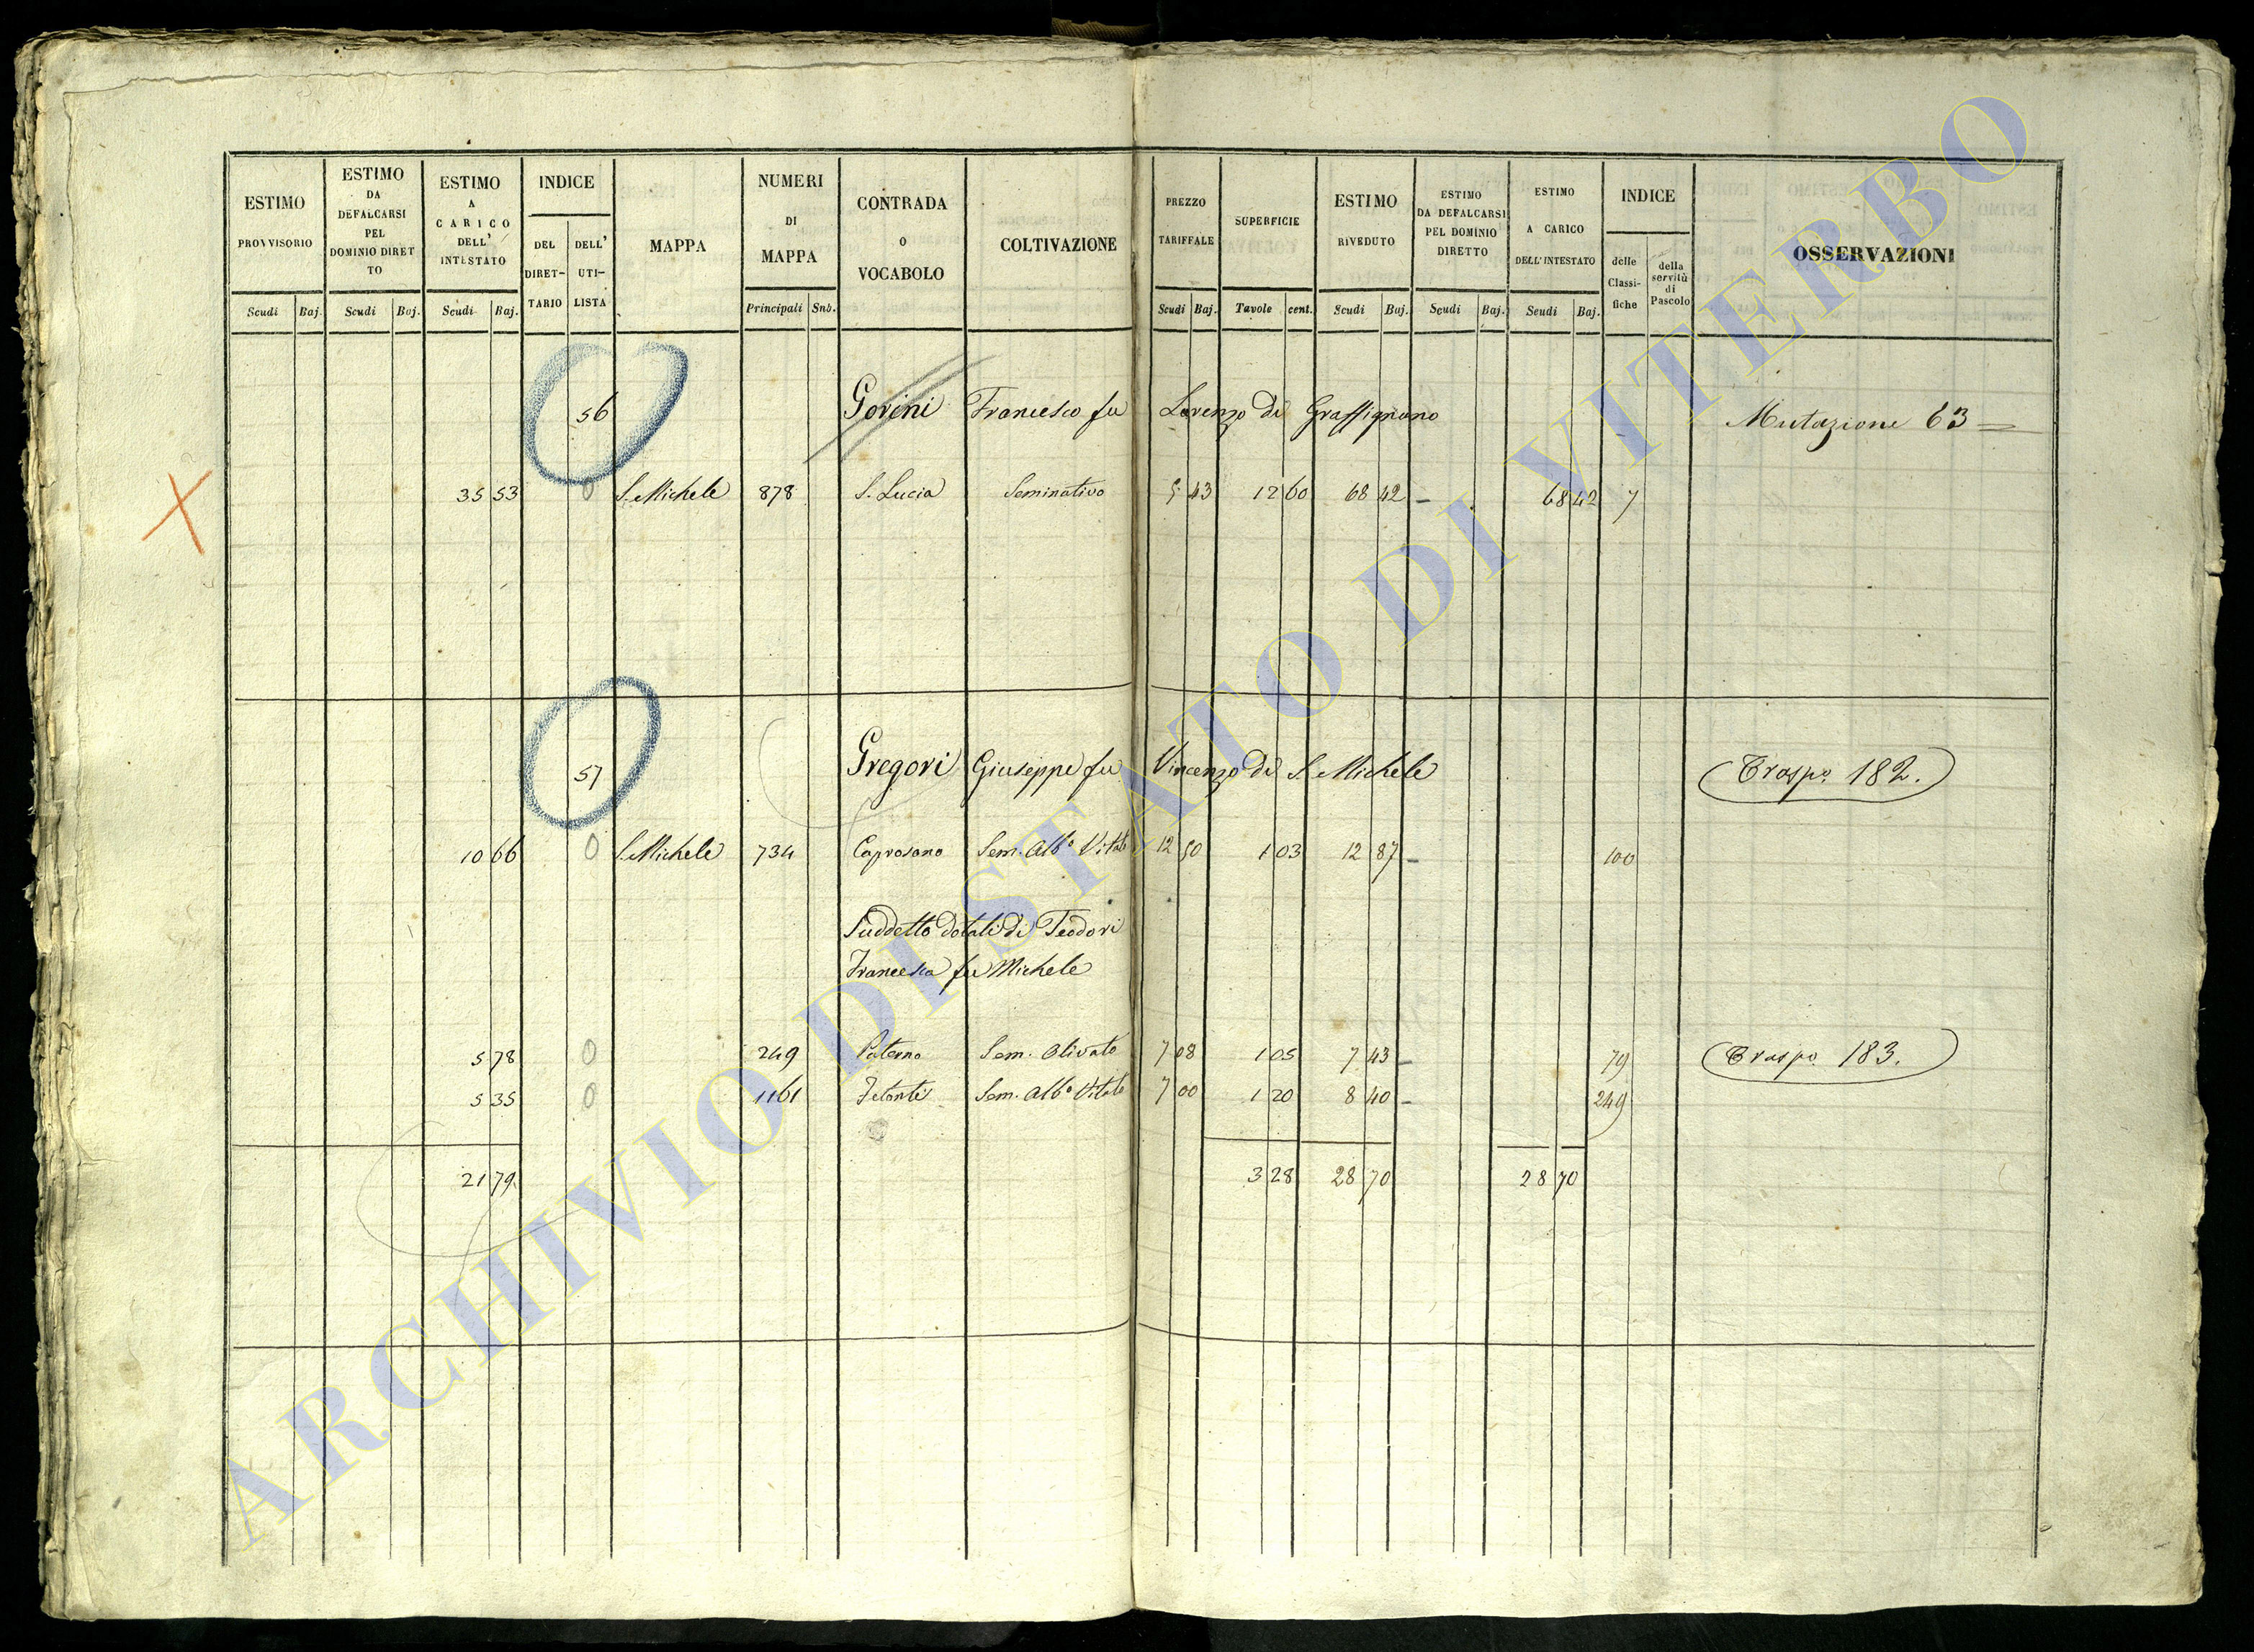 ESTIMO PROVVISORIO
Scudi Baj.
ESTIMO DA DEFALCARSI PEL DOMINIO DIRET TO
Scudi Baj.
ESTIMO A CARICO DELL' INTESTATO
Scudi Baj.
INDICE
DEL DIRET- TARIO
DELL' UTI- LISTA
MAPPA
NUMERI DI MAPPA
Principali Sub.
CONTRADA O VOCABOLO
COLTIVAZIONE
PREZZO TARIFFALE
Scudi Baj.
SUPERFICIE
Tavole cent.
ESTIMO RIVEDUTO
Scudi Baj.
ESTIMO DA DEFALCARSI PEL DOMINIO DIRETTO
Scudi Baj.
ESTIMO A CARICO DELL' INTESTATO
Scudi Baj.
INDICE
delle Classi- fiche
della servitù di Pascolo
OSSERVAZIONI
56 Gorini Francesco fu Lorenzo di Graffignano Mutazione 63
35 53 0 S. Michele 878 S. Lucia Seminativo 5 43 12 60 68 42 — 68 42 7
57 Gregori Giuseppe fu Vincenzo di S. Michele Traspo. 182.
10 66 0 S. Michele 734 Caprosano Sem. Albo Vitato 12 50 1 03 12 87 — 100
Suddetto dotali di Teodori
Francesca fu Michele
5 78 0 249 Paterno Sem. Olivato 7 08 1 05 7 43 — 79 Traspo 183.
5 35 0 1161 Sem. Albo Vitato 7 00 1 20 8 40 — 249
21 79 3 28 28 70 28 70
ARCHIVIO DI STATO DI VITERBO